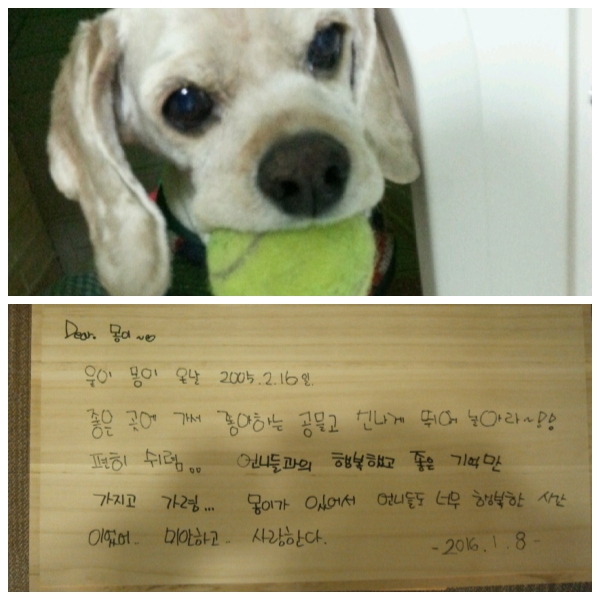 Dear. 몽이~
우리 몽이 온날 2005.2.16일.
좋은 곳에 가서 좋아하는 공물고 신나게 뛰어 놀아라~!!
편히 쉬렴.. 언니들과의 행복했고 좋은 기억만
가지고 가렴... 몽이가 있어서 언니들도 너무 행복한 시간
이었어.. 미안하고.. 사랑한다.
-2016.1.8-